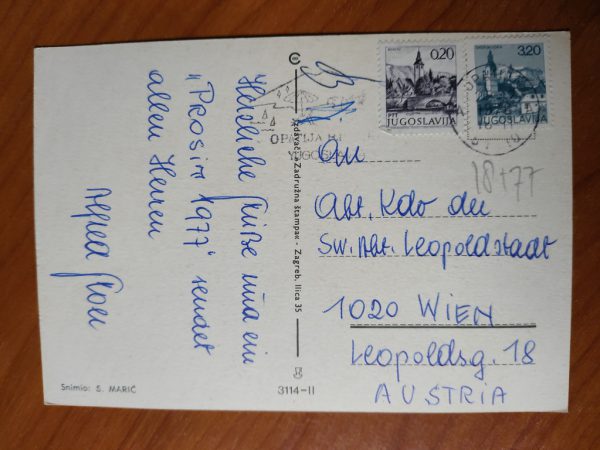 Herzliche Grüße und ein
"PROSIM 1977" sendet
allen Herren
Alfred
Snimio: S. MARIĆ
Izdavačka Zadružna štampa - Zagreb, Ilica 35
3114-II
OPATIJA
YUGOSLAVIJA
0,20
JUGOSLAVIJA
3,20
JUGOSLAVIJA
18 77
An
Abt. Kdo der
SW. Abt. Leopoldstadt
1020 WIEN
Leopoldsg. 18
AUSTRIA